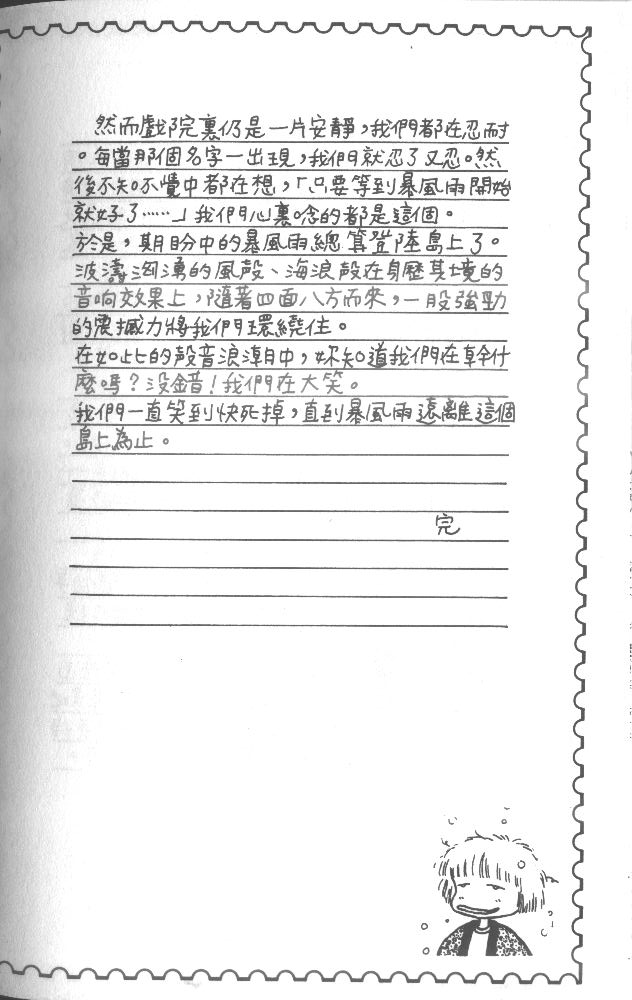 然而戲院裏仍是一片安靜，我們都在忍耐
。每當那個名字一出現，我們就忍了又忍。然
後不知不覺中都在想，「只要等到暴風雨開始
就好了……」我們心裏唸的都是這個。
於是，期盼中的暴風雨總算登陸島上了。
波濤洶湧的風聲、海浪聲在身歷其境的
音响效果上，隨著四面八方而來，一股強勁
的震撼力將我們環繞住。
在如此的聲音浪潮中，妳知道我們在幹什
麼嗎？沒錯！我們在大笑。
我們一直笑到快死掉，直到暴風雨遠離這個
島上為止。
完